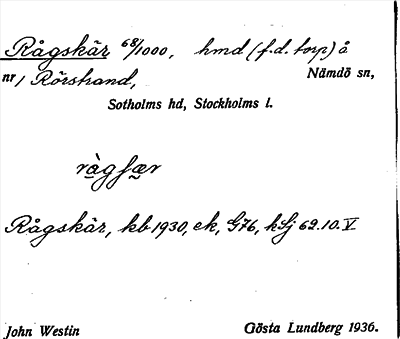 Rågskär 68/1000, hmd (f.d. torp) å
nr 1 Rörstrand, Nämdö sn,
Sotholms hd, Stockholms l.
Rågskär, kb 1930, ek, G76, hSj 62.10. V
John Westin Gösta Lundberg 1936.